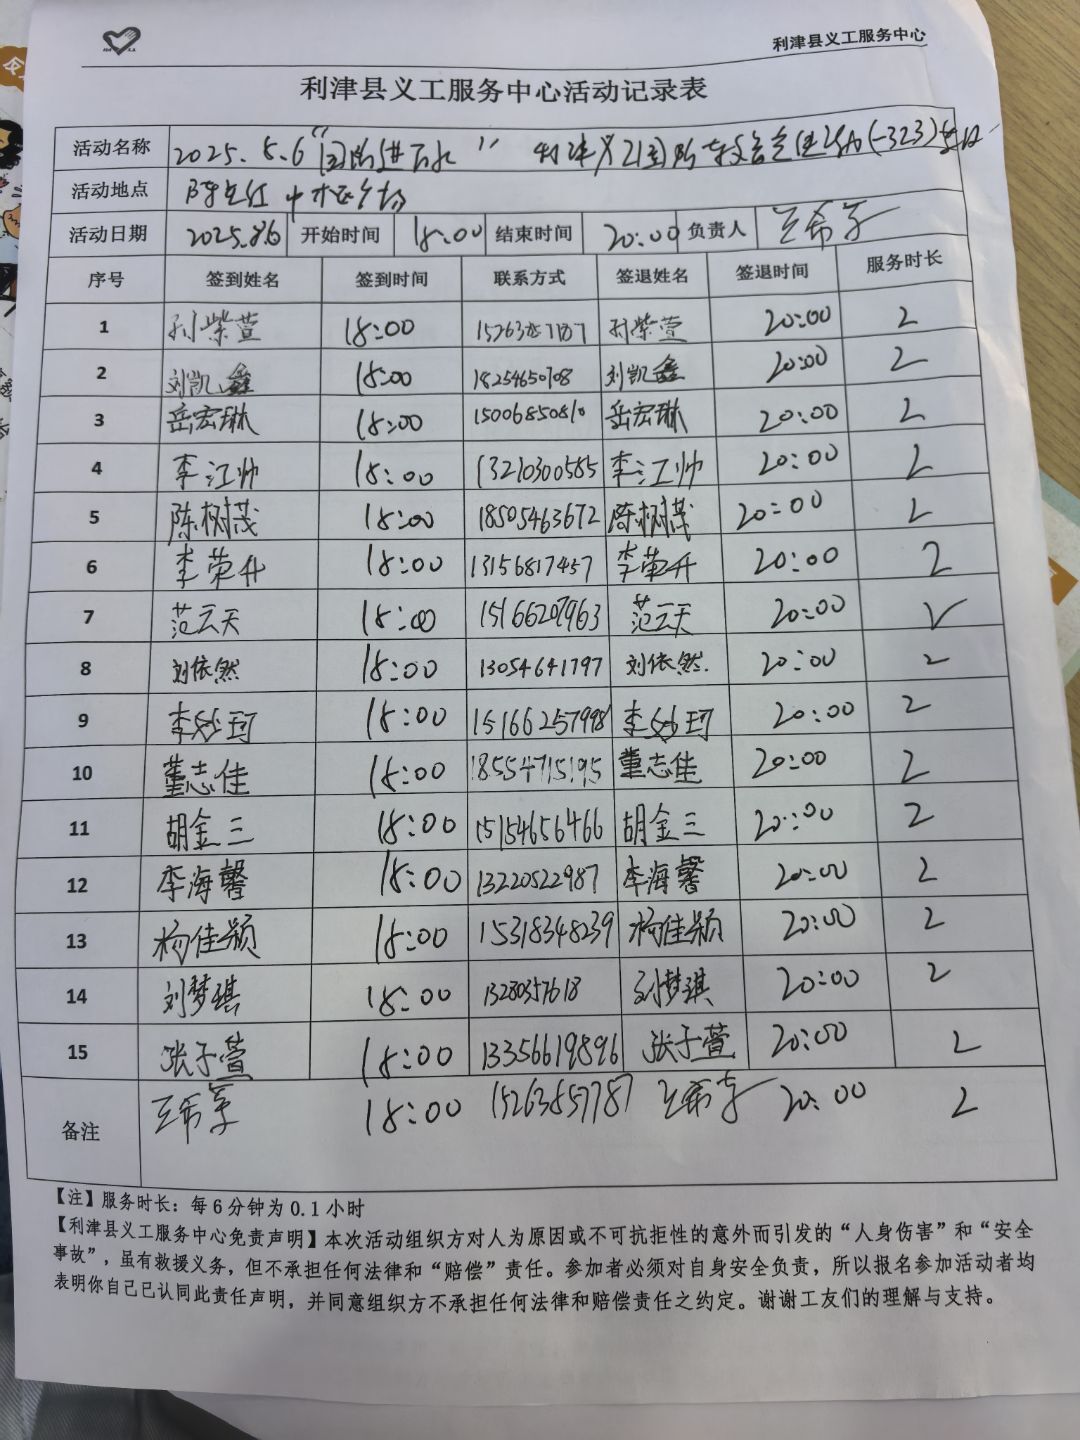 利津县义工服务中心
利津县义工服务中心活动记录表
活动名称 2025.8.6“国防进万家” 利津义工国防教育宣传活动(-323)
活动地点 陈庄红 广场
活动日期 2025.8.6 开始时间 18:00 结束时间 20:00 负责人 王希孝
序号 签到姓名 签到时间 联系方式 签退姓名 签退时间 服务时长
1 孙紫萱 18:00 孙紫萱 20:00 2
2 刘凯鑫 18:00 18254650708 刘凯鑫 20:00 2
3 岳宏琳 18:00 15006850810 岳宏琳 20:00 2
4 李江帅 18:00 13210300585 李江帅 20:00 2
5 陈树茂 18:00 18505463672 陈树茂 20:00 2
6 李荣升 18:00 13156817457 李荣升 20:00 2
7 范云天 18:00 15166207963 范云天 20:00 2
8 刘依然 18:00 13054641797 刘依然. 20:00 2
9 李妙珂 18:00 15166257998 李妙珂 20:00 2
10 董志佳 18:00 18554715195 董志佳 20:00 2
11 胡金三 18:00 15154656466 胡金三 20:00 2
12 李海馨 18:00 13220522987 李海馨 20:00 2
13 杨佳颖 18:00 15318348239 杨佳颖 20:00 2
14 刘梦琪 18:00 刘梦琪 20:00 2
15 张子萱 18:00 13356619896 张子萱 20:00 2
备注 王希孝 18:00 15263857787 王希孝 20:00 2
【注】服务时长：每6分钟为0.1小时
【利津县义工服务中心免责声明】本次活动组织方对人为原因或不可抗拒性的意外而引发的“人身伤害”和“安全
事故”，虽有救援义务，但不承担任何法律和“赔偿”责任。参加者必须对自身安全负责，所以报名参加活动者均
表明你自己已认同此责任声明，并同意组织方不承担任何法律和赔偿责任之约定。谢谢工友们的理解与支持。